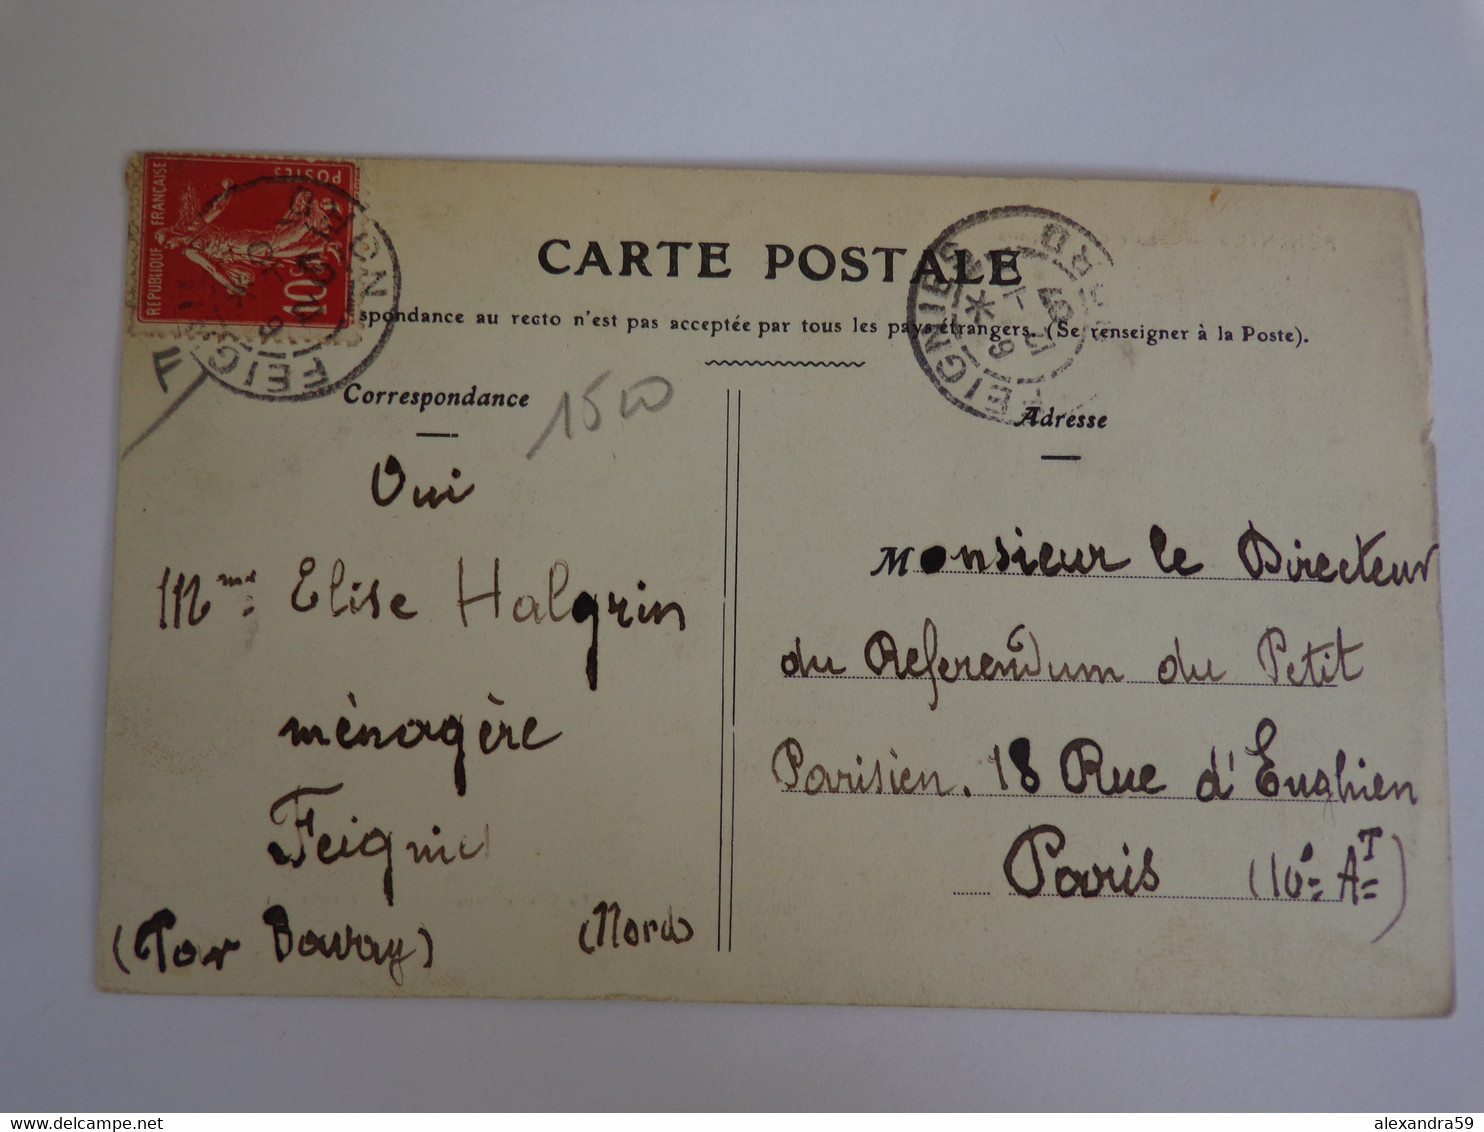 REPUBLIQUE FRANÇAISE
POSTES
10
FEIGNIES
NORD
CARTE POSTALE
FEIGNIES
NORD
spondance au recto n'est pas acceptée par tous les pays étrangers. (Se renseigner à la Poste).
Correspondance
Oui
Mme Elise Halgrin
ménagère
Feignies
(Par Bavay) (Nord)
Adresse
Monsieur le Directeur
du Referendum du Petit
Parisien. 18 Rue d'Enghien
Paris (10e AT)
delcampe.net
alexandra59